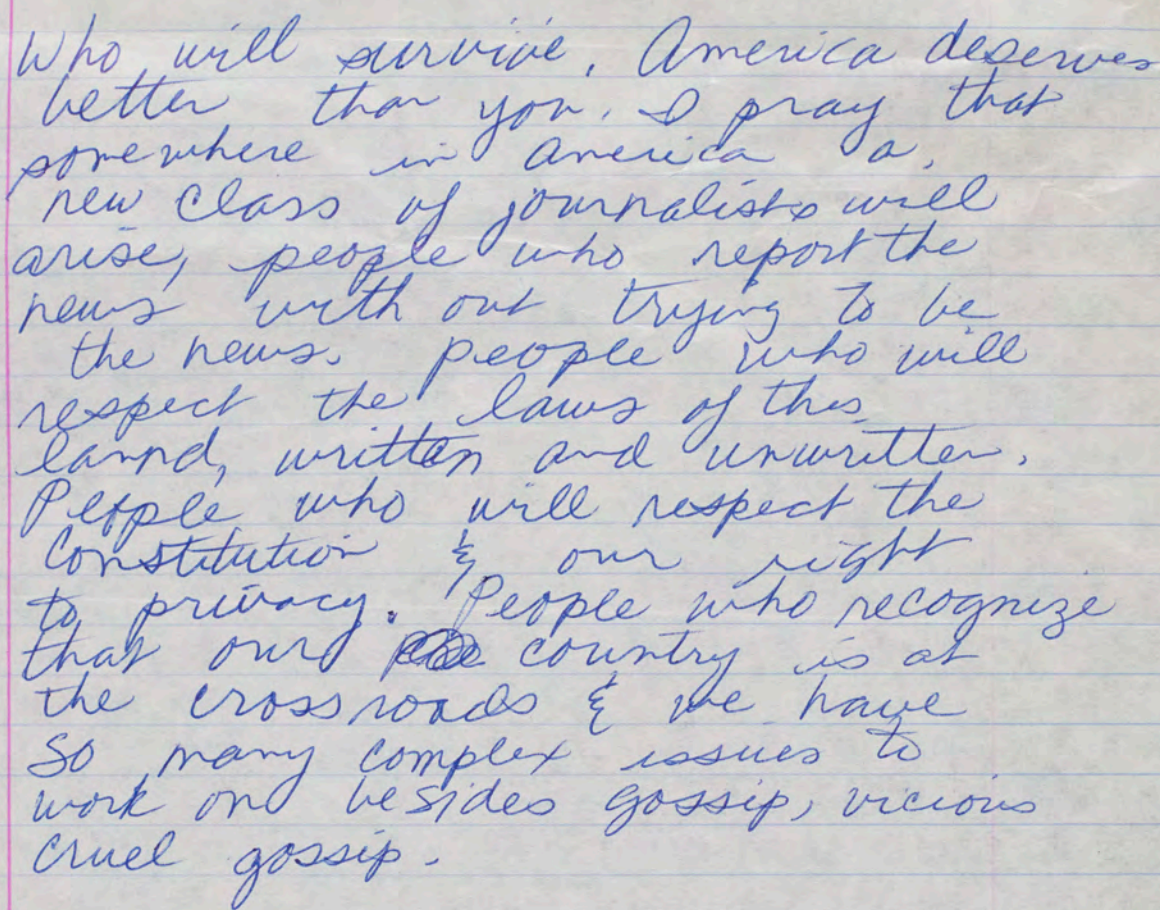 Who will survive. America deserves
better than you. I pray that
somewhere in America a
new class of journalists will
arise, people who report the
news with out trying to be
the news. people who will
respect the laws of this
lannd, written and unwritten.
People who will respect the
Constitution & our right
to privacy. People who recognize
that our country is at
the crossroads & we have
so many complex issues to
work on besides gossip, vicious
cruel gossip.